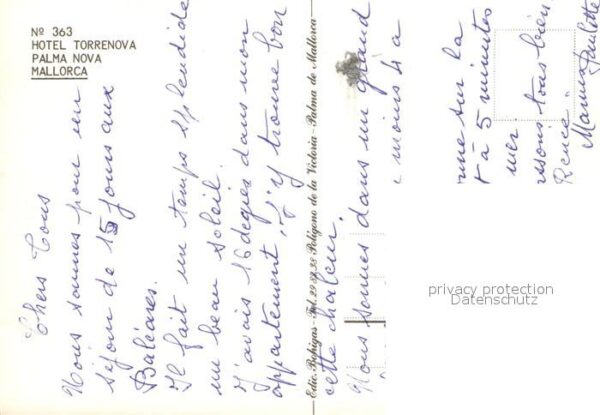 Nº 363
HOTEL TORRENOVA
PALMA NOVA
MALLORCA
Chers tous
Nous sommes pour un
séjour de 15 jours aux
Baléares.
Il fait un temps splendide
un beau soleil.
J'avais 16 degrés dans mon
appartement, j'y trouve bon
Edic. Bohigas - Tel. 29 84 38 Polígono de la Victoria - Palma de Mallorca
cette chaleur.
Nous sommes dans un grand
moins 4 a
sur la
à 5 minutes
mer.
tous bien
Renée.
Mamie Paulette
privacy protection
Datenschutz